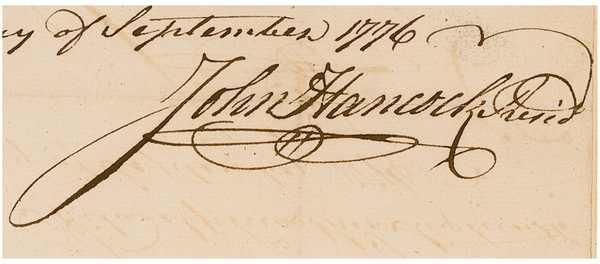 ay of September 1776
John Hancock Presid